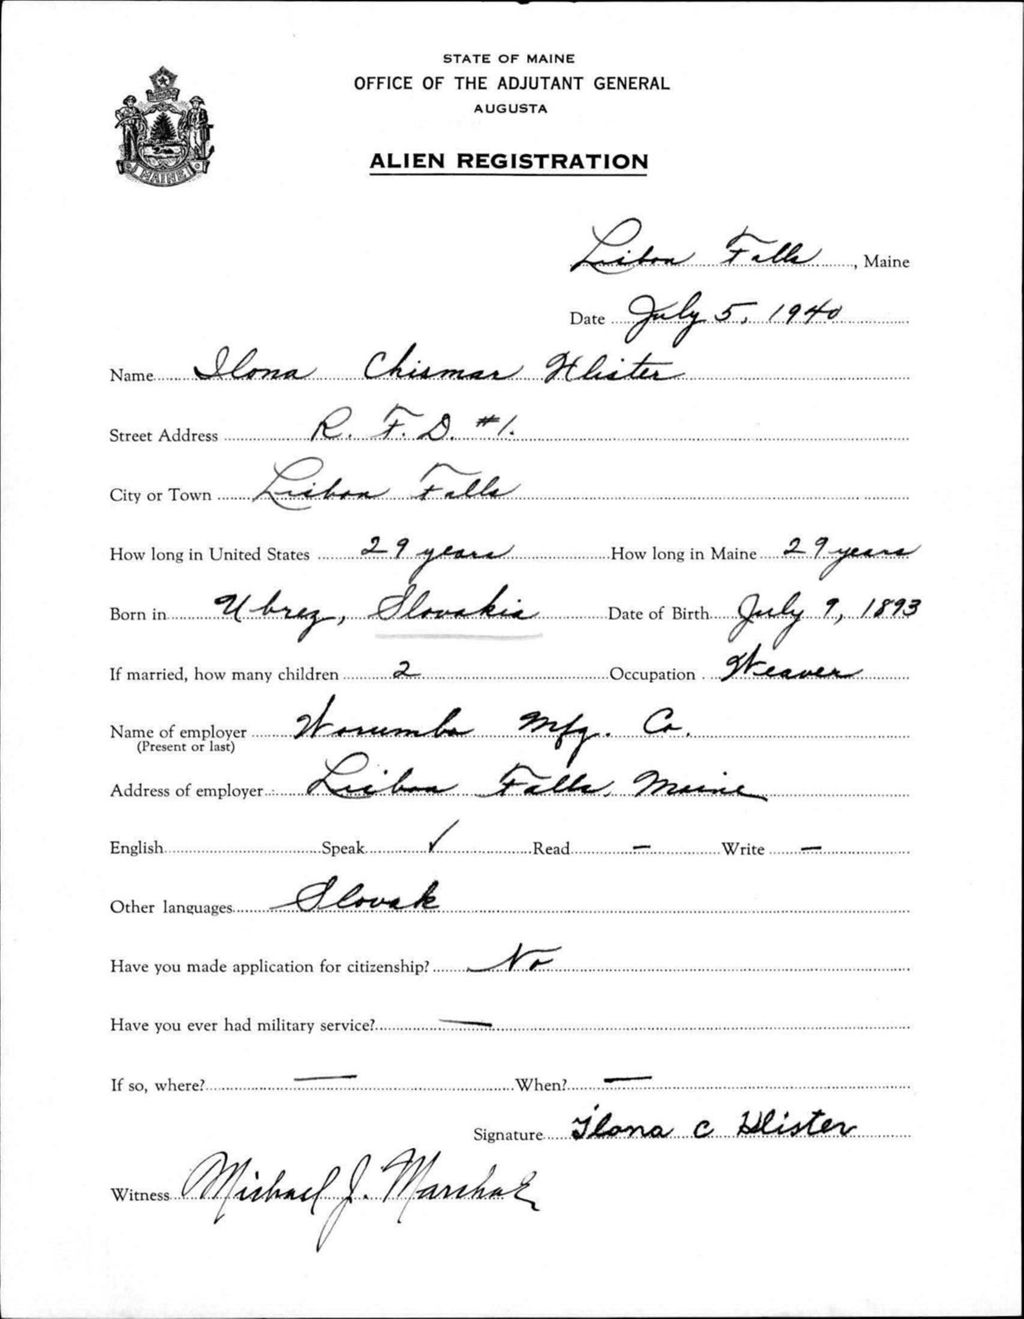 STATE OF MAINE
OFFICE OF THE ADJUTANT GENERAL
AUGUSTA
ALIEN REGISTRATION
MAINE
Lisbon Falls, Maine
Date July 5, 1940
Name Ilona Chismar Hlister
Street Address R. F. D. #1.
City or Town Lisbon Falls
How long in United States 29 years How long in Maine 29 years
Born in Ubrez, Slovakia Date of Birth July 9, 1893
If married, how many children 2 Occupation Weaver
Name of employer Worumbo Mfg. Co.
(Present or last)
Address of employer Lisbon Falls, Maine
English Speak ✓ Read — Write —
Other languages Slovak
Have you made application for citizenship? No
Have you ever had military service? —
If so, where? — When? —
Signature Ilona C Hlister
Witness Michael J. Marshak